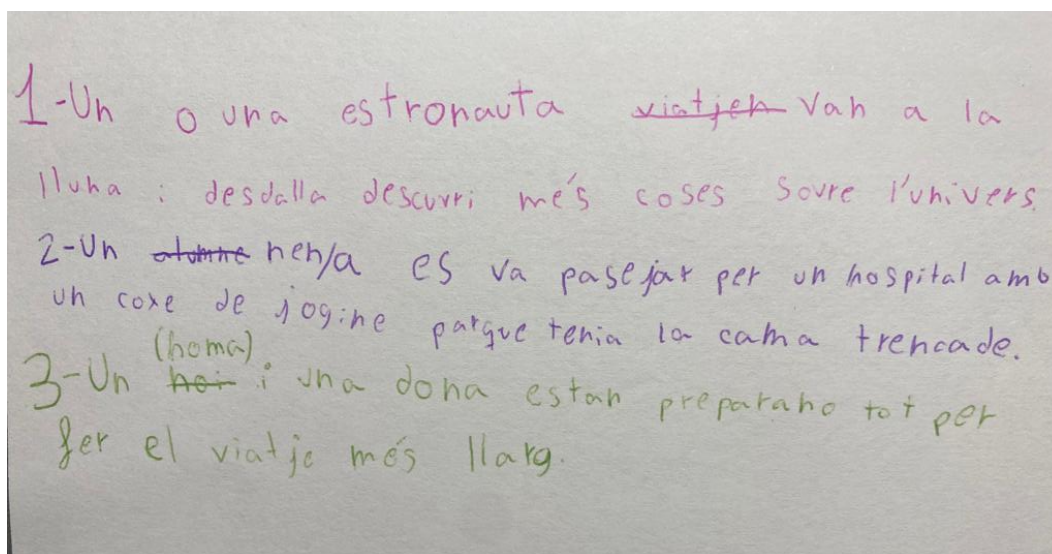 1-Un o una estronauta viatjen van a la
lluna i desdalla descurri més coses sovre l'univers.
2-Un alumne nen/a es va pasejar per un hospital amb
un coxe de jogine parque tenia la cama trencade.
(homa)
3-Un noi i una dona estan preparanho tot per
fer el viatje més llarg.